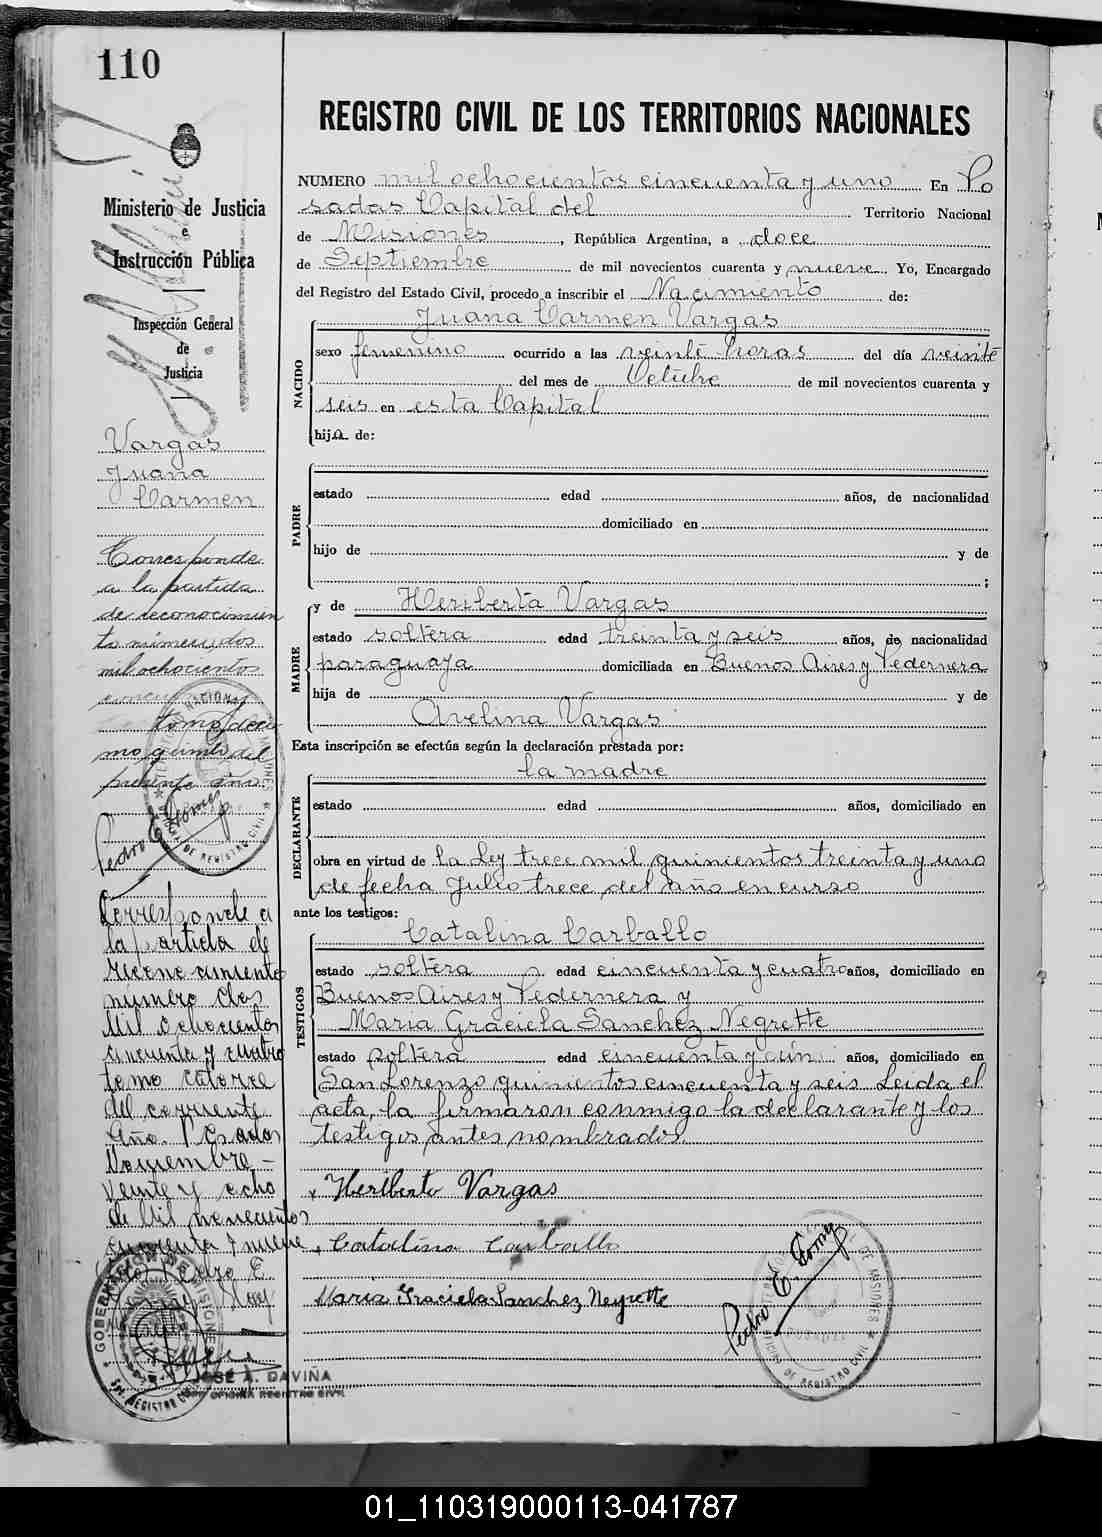 110
REGISTRO CIVIL DE LOS TERRITORIOS NACIONALES
Ministerio de Justicia
e
Instrucción Pública
Inspección General
de
Justicia
Vargas
Juana
Carmen
Corresponde
a la partida
de reconocimien
to número dos
mil ochocientos
tomo deci
mo quinto del
presente año
Pedro E. Gomez
Corresponde a
la partida de
reconocimiento
número dos
mil ochocientos
cincuenta y cuatro
tomo catorce
del corriente
año. Posadas
Noviembre
veinte y ocho
de mil novecientos
cuarenta y nueve
GOBERNACION DE MISIONES
REGISTRO CIVIL
JOSE A. DAVIÑA
OFICINA REGISTRO CIVIL
NUMERO mil ochocientos cincuenta y uno En Po
sadas Capital del Territorio Nacional
de Misiones, República Argentina, a doce
de Septiembre de mil novecientos cuarenta y nueve Yo, Encargado
del Registro del Estado Civil, procedo a inscribir el Nacimiento de:
NACIDO
Juana Carmen Vargas
sexo femenino ocurrido a las veinte horas del día veinte
del mes de Octubre de mil novecientos cuarenta y
seis en esta Capital
hija de:
PADRE
estado edad años, de nacionalidad
domiciliado en
hijo de y de
;
MADRE
y de Heriberta Vargas
estado soltera edad treinta y seis años, de nacionalidad
paraguaya domiciliada en Buenos Aires y Pedernera
hija de y de
Avelina Vargas
Esta inscripción se efectúa según la declaración prestada por:
DECLARANTE
la madre
estado edad años, domiciliado en
obra en virtud de la Ley trece mil quinientos treinta y uno
de fecha Julio trece del año en curso
ante los testigos:
TESTIGOS
Catalina Carballo
estado soltera edad cincuenta y cuatro años, domiciliado en
Buenos Aires y Pedernera y
Maria Graciela Sanchez Negrette
estado soltera edad cincuenta y un años, domiciliado en
San Lorenzo quinientos cincuenta y seis. Leida el
acta, la firmaron conmigo la declarante y los
testigos antes nombrados
x Heriberta Vargas
Catalina Carballo
Maria Graciela Sanchez Negrette
Pedro E. Gomez
01_110319000113-041787